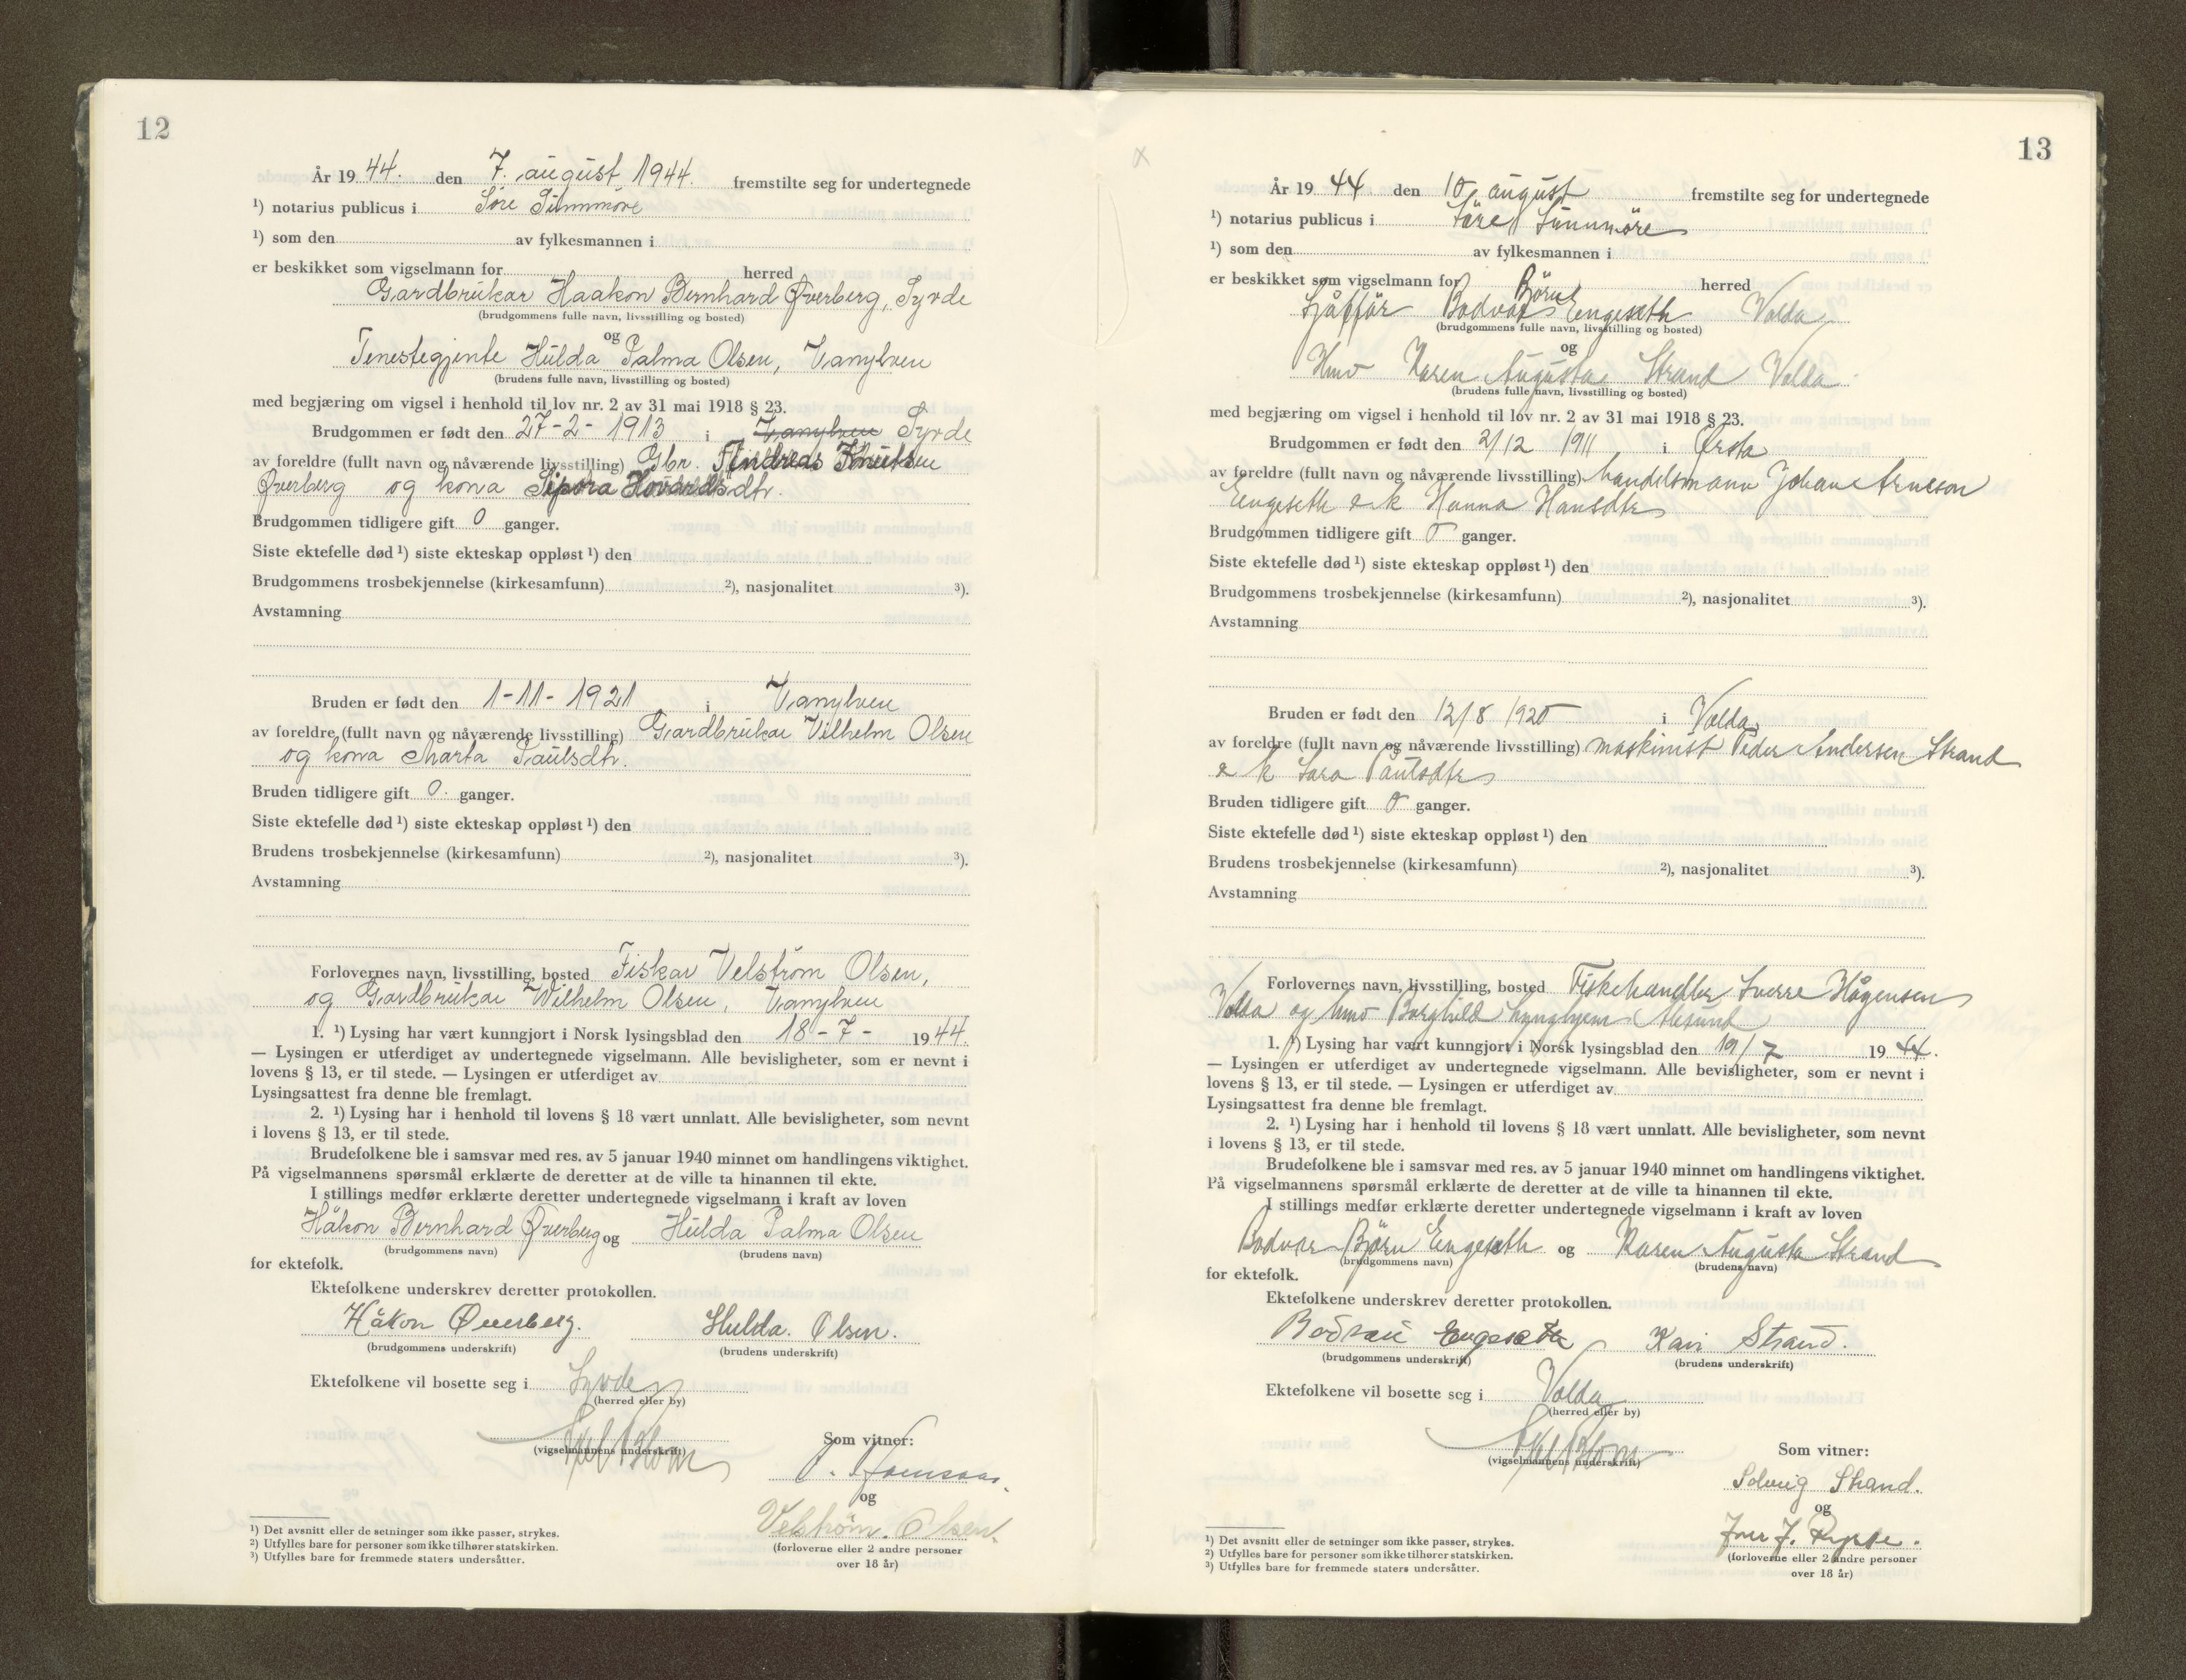 12
År 1944. den 7. august 1944. fremstilte seg for undertegnede
¹) notarius publicus i Søre Sunnmøre
¹) som den av fylkesmannen i
er beskikket som vigselmann for herred
Gardbrukar Haakon Bernhard Øverberg, Syvde
(brudgommens fulle navn, livsstilling og bosted)
og
Tenestegjente Hulda Palma Olsen, Vanylven
(brudens fulle navn, livsstilling og bosted)
med begjæring om vigsel i henhold til lov nr. 2 av 31 mai 1918 § 23.
Brudgommen er født den 27-2-1913 i Vanylven Syvde
av foreldre (fullt navn og nåværende livsstilling) Gbr. Andreas Knutsen
Øverberg og kona Sipora Hovardsdtr.
Brudgommen tidligere gift 0 ganger.
Siste ektefelle død ¹) siste ekteskap oppløst ¹) den
Brudgommens trosbekjennelse (kirkesamfunn) ²), nasjonalitet ³).
Avstamning
Bruden er født den 1-11-1921 i Vanylven
av foreldre (fullt navn og nåværende livsstilling) Gardbrukar Vilhelm Olsen
og kona Marta Paulsdtr.
Bruden tidligere gift 0. ganger.
Siste ektefelle død ¹) siste ekteskap oppløst ¹) den
Brudens trosbekjennelse (kirkesamfunn) ²), nasjonalitet ³).
Avstamning
Forlovernes navn, livsstilling, bosted Fiskar Velstrøm Olsen,
og Gardbrukar Wilhelm Olsen, Vanylven
1. ¹) Lysing har vært kunngjort i Norsk lysingsblad den 18-7- 1944.
— Lysingen er utferdiget av undertegnede vigselmann. Alle bevisligheter, som er nevnt i
lovens § 13, er til stede. — Lysingen er utferdiget av
Lysingsattest fra denne ble fremlagt.
2. ¹) Lysing har i henhold til lovens § 18 vært unnlatt. Alle bevisligheter, som nevnt
i lovens § 13, er til stede.
Brudefolkene ble i samsvar med res. av 5 januar 1940 minnet om handlingens viktighet.
På vigselmannens spørsmål erklærte de deretter at de ville ta hinannen til ekte.
I stillings medfør erklærte deretter undertegnede vigselmann i kraft av loven
Håkon Bernhard Øverberg og Hulda Palma Olsen
(brudgommens navn) (brudens navn)
for ektefolk.
Ektefolkene underskrev deretter protokollen.
Håkon Øverberg. Hulda. Olsen.
(brudgommens underskrift) (brudens underskrift)
Ektefolkene vil bosette seg i Syvde
(herred eller by)
(vigselmannens underskrift)
Som vitner:
og
Velstrøm. Olsen.
(forloverne eller 2 andre personer
over 18 år)
¹) Det avsnitt eller de setninger som ikke passer, strykes.
²) Utfylles bare for personer som ikke tilhører statskirken.
³) Utfylles bare for fremmede staters undersåtter.
13
År 1944 den 10 august fremstilte seg for undertegnede
¹) notarius publicus i Søre Sunnmöre
¹) som den av fylkesmannen i
er beskikket som vigselmann for herred
Sjåffør Bodvar Björn Engeseth Volda
(brudgommens fulle navn, livsstilling og bosted)
og
Hmv Karen Augusta Strand Volda
(brudens fulle navn, livsstilling og bosted)
med begjæring om vigsel i henhold til lov nr. 2 av 31 mai 1918 § 23.
Brudgommen er født den 2/12 1911 i Ørsta
av foreldre (fullt navn og nåværende livsstilling) handelsmann Johan Arneson
Engeseth & k Hanna Hansdtr
Brudgommen tidligere gift 0 ganger.
Siste ektefelle død ¹) siste ekteskap oppløst ¹) den
Brudgommens trosbekjennelse (kirkesamfunn) ²), nasjonalitet ³).
Avstamning
Bruden er født den 12/8 1920 i Volda
av foreldre (fullt navn og nåværende livsstilling) maskinist Peder Andersen Strand
& k Sara Paulsdtr
Bruden tidligere gift 0 ganger.
Siste ektefelle død ¹) siste ekteskap oppløst ¹) den
Brudens trosbekjennelse (kirkesamfunn) ²), nasjonalitet ³).
Avstamning
Forlovernes navn, livsstilling, bosted Fiskehandler Sverre Hågensen
Volda og hmv Borghild Lynghjem Ålesund
1. ¹) Lysing har vært kunngjort i Norsk lysingsblad den 19/7 1944.
— Lysingen er utferdiget av undertegnede vigselmann. Alle bevisligheter, som er nevnt i
lovens § 13, er til stede. — Lysingen er utferdiget av
Lysingsattest fra denne ble fremlagt.
2. ¹) Lysing har i henhold til lovens § 18 vært unnlatt. Alle bevisligheter, som nevnt
i lovens § 13, er til stede.
Brudefolkene ble i samsvar med res. av 5 januar 1940 minnet om handlingens viktighet.
På vigselmannens spørsmål erklærte de deretter at de ville ta hinannen til ekte.
I stillings medfør erklærte deretter undertegnede vigselmann i kraft av loven
Bodvar Björn Engeseth og Karen Augusta Strand
(brudgommens navn) (brudens navn)
for ektefolk.
Ektefolkene underskrev deretter protokollen.
Bodvar Engeseth Kari Strand.
(brudgommens underskrift) (brudens underskrift)
Ektefolkene vil bosette seg i Volda
(herred eller by)
(vigselmannens underskrift)
Som vitner:
Solveig Strand.
og
(forloverne eller 2 andre personer
over 18 år)
¹) Det avsnitt eller de setninger som ikke passer, strykes.
²) Utfylles bare for personer som ikke tilhører statskirken.
³) Utfylles bare for fremmede staters undersåtter.